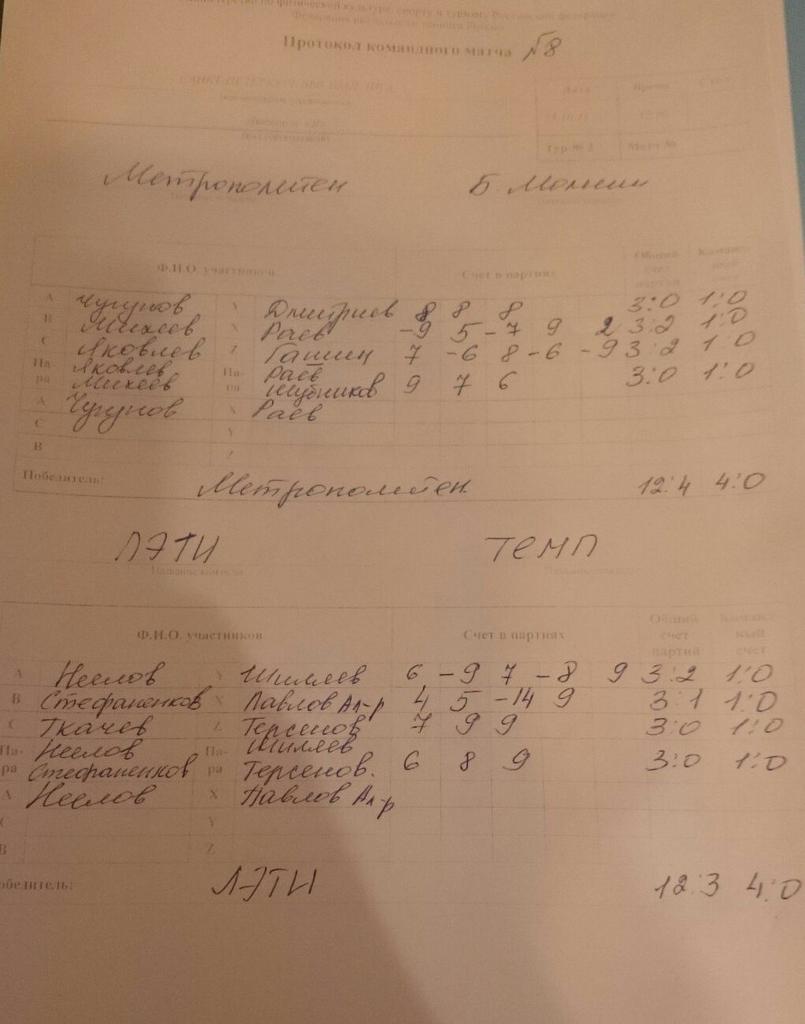 Министерство по физической культуре, спорту и туризму Российской федерации
Федерация настольного тенниса России
Протокол командного матча №8
САНКТ-ПЕТЕРБУРГ
Дата Время
Тур № Матч №
Метрополитен Б. Молнии
Ф.И.О. участников Счет в партиях Общий счет партий Командный счет
A Чугунов Y Дмитриев 8 8 8 3:0 1:0
B Михеев X Раев -9 5 -7 9 2 3:2 1:0
C Яковлев Z Гашин 7 -6 8 -6 -9 3:2 1:0
Па- Яковлев Па- Раев
ра Михеев ра Шубников 9 7 6 3:0 1:0
A Чугунов X Раев
C Y
B Z
Победитель: Метрополитен 12:4 4:0
ЛЭТИ ТЕМП
Название команды
Ф.И.О. участников Счет в партиях Общий счет партий Командный счет
A Неелов Y Шиляев 6 -9 7 -8 9 3:2 1:0
B Стефаненков X Павлов Ал-р 4 5 -14 9 3:1 1:0
C Ткачев Z Терсенов 7 9 9 3:0 1:0
Па- Неелов Па- Шиляев
ра Стефаненков ра Терсенов. 6 8 9 3:0 1:0
A Неелов X Павлов Ал-р
C Y
B Z
обедитель: ЛЭТИ 12:3 4:0